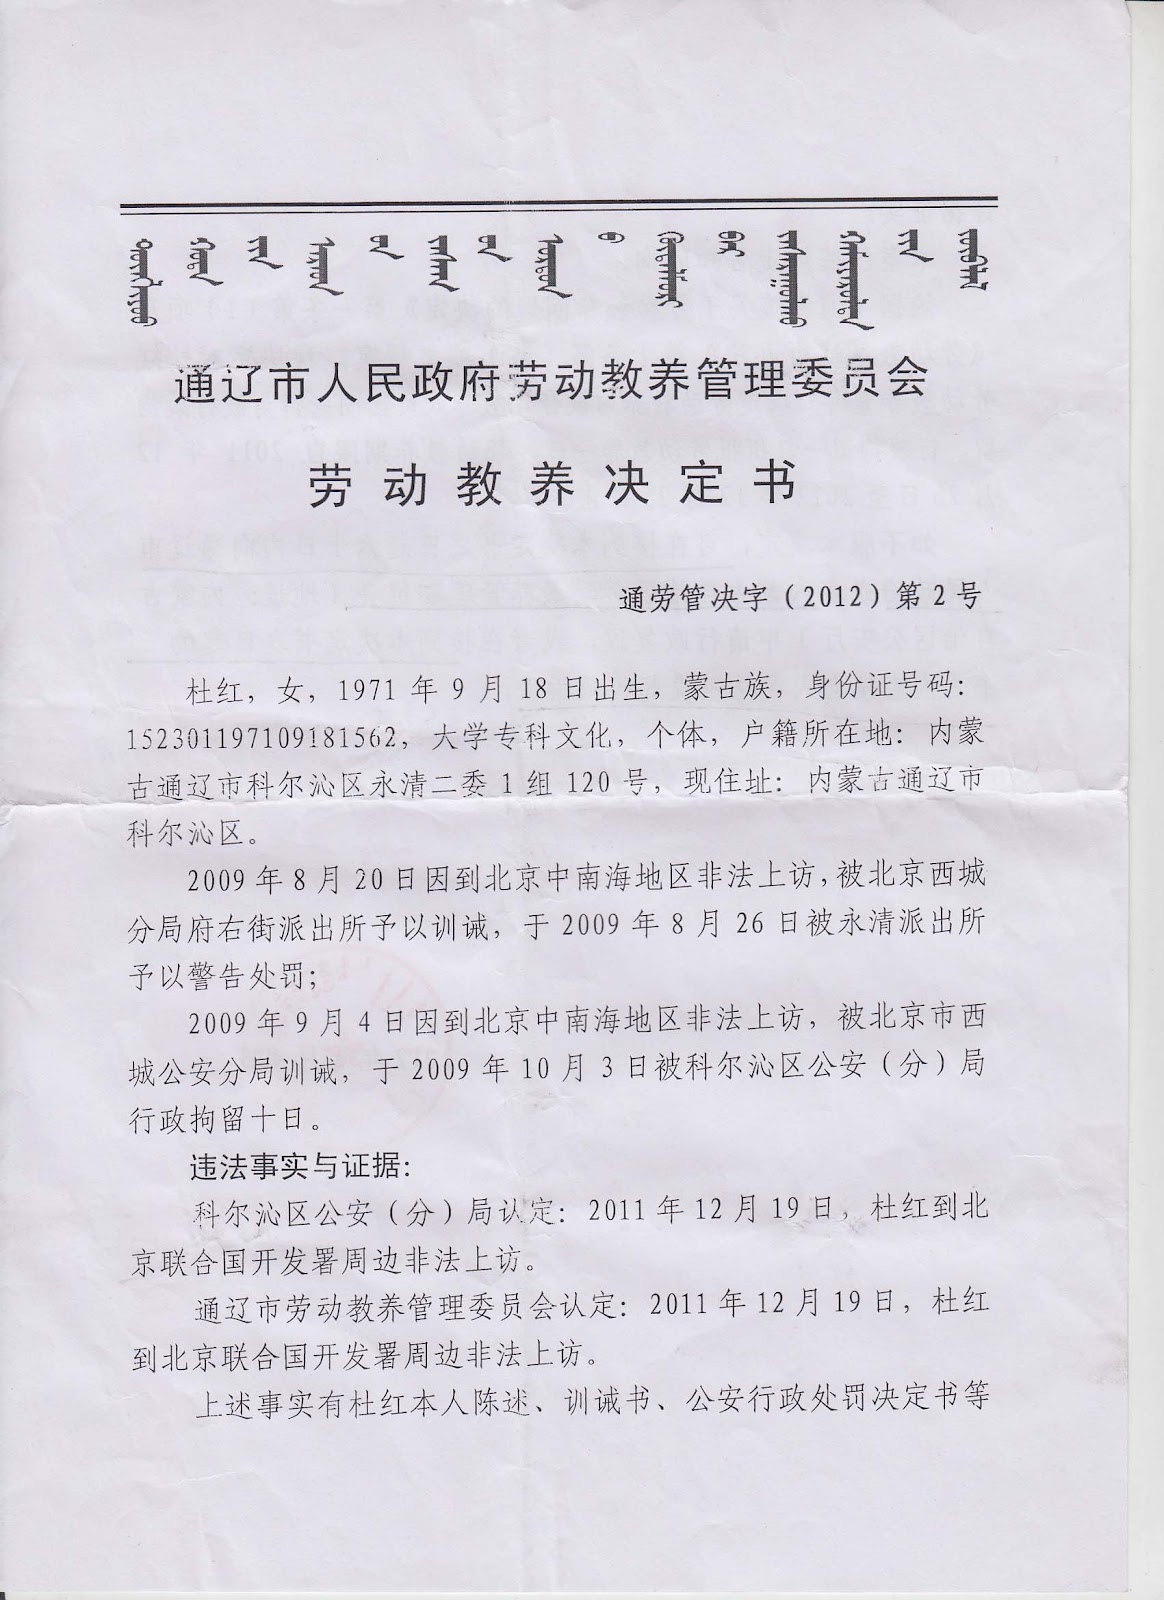 通辽市人民政府劳动教养管理委员会
劳动教养决定书
通劳管决字（2012）第2号
杜红，女，1971年9月18日出生，蒙古族，身份证号码：
152301197109181562，大学专科文化，个体，户籍所在地：内蒙
古通辽市科尔沁区永清二委1组120号，现住址：内蒙古通辽市
科尔沁区。
2009年8月20日因到北京中南海地区非法上访，被北京西城
分局府右街派出所予以训诫，于2009年8月26日被永清派出所
予以警告处罚；
2009年9月4日因到北京中南海地区非法上访，被北京市西
城公安分局训诫，于2009年10月3日被科尔沁区公安（分）局
行政拘留十日。
违法事实与证据：
科尔沁区公安（分）局认定：2011年12月19日，杜红到北
京联合国开发署周边非法上访。
通辽市劳动教养管理委员会认定：2011年12月19日，杜红
到北京联合国开发署周边非法上访。
上述事实有杜红本人陈述、训诫书、公安行政处罚决定书等